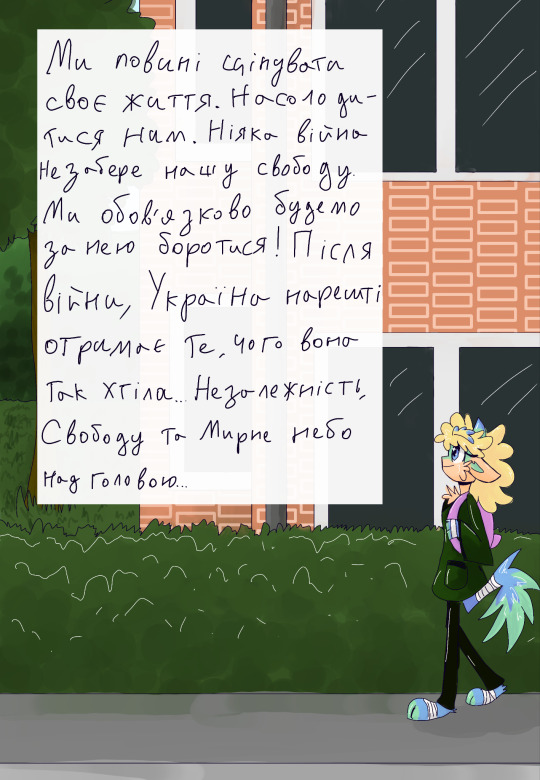 Ми повині сцінувати
своє життя. Насолоди-
тися ним. Ніяка війна
Незабере нашу свободу.
Ми обов'язково будемо
за нею боротися! Після
війни, Україна нарешті
отримає те, чого вона
так хтіла... Незалежність,
Свободу та Мирне небо
над головою...